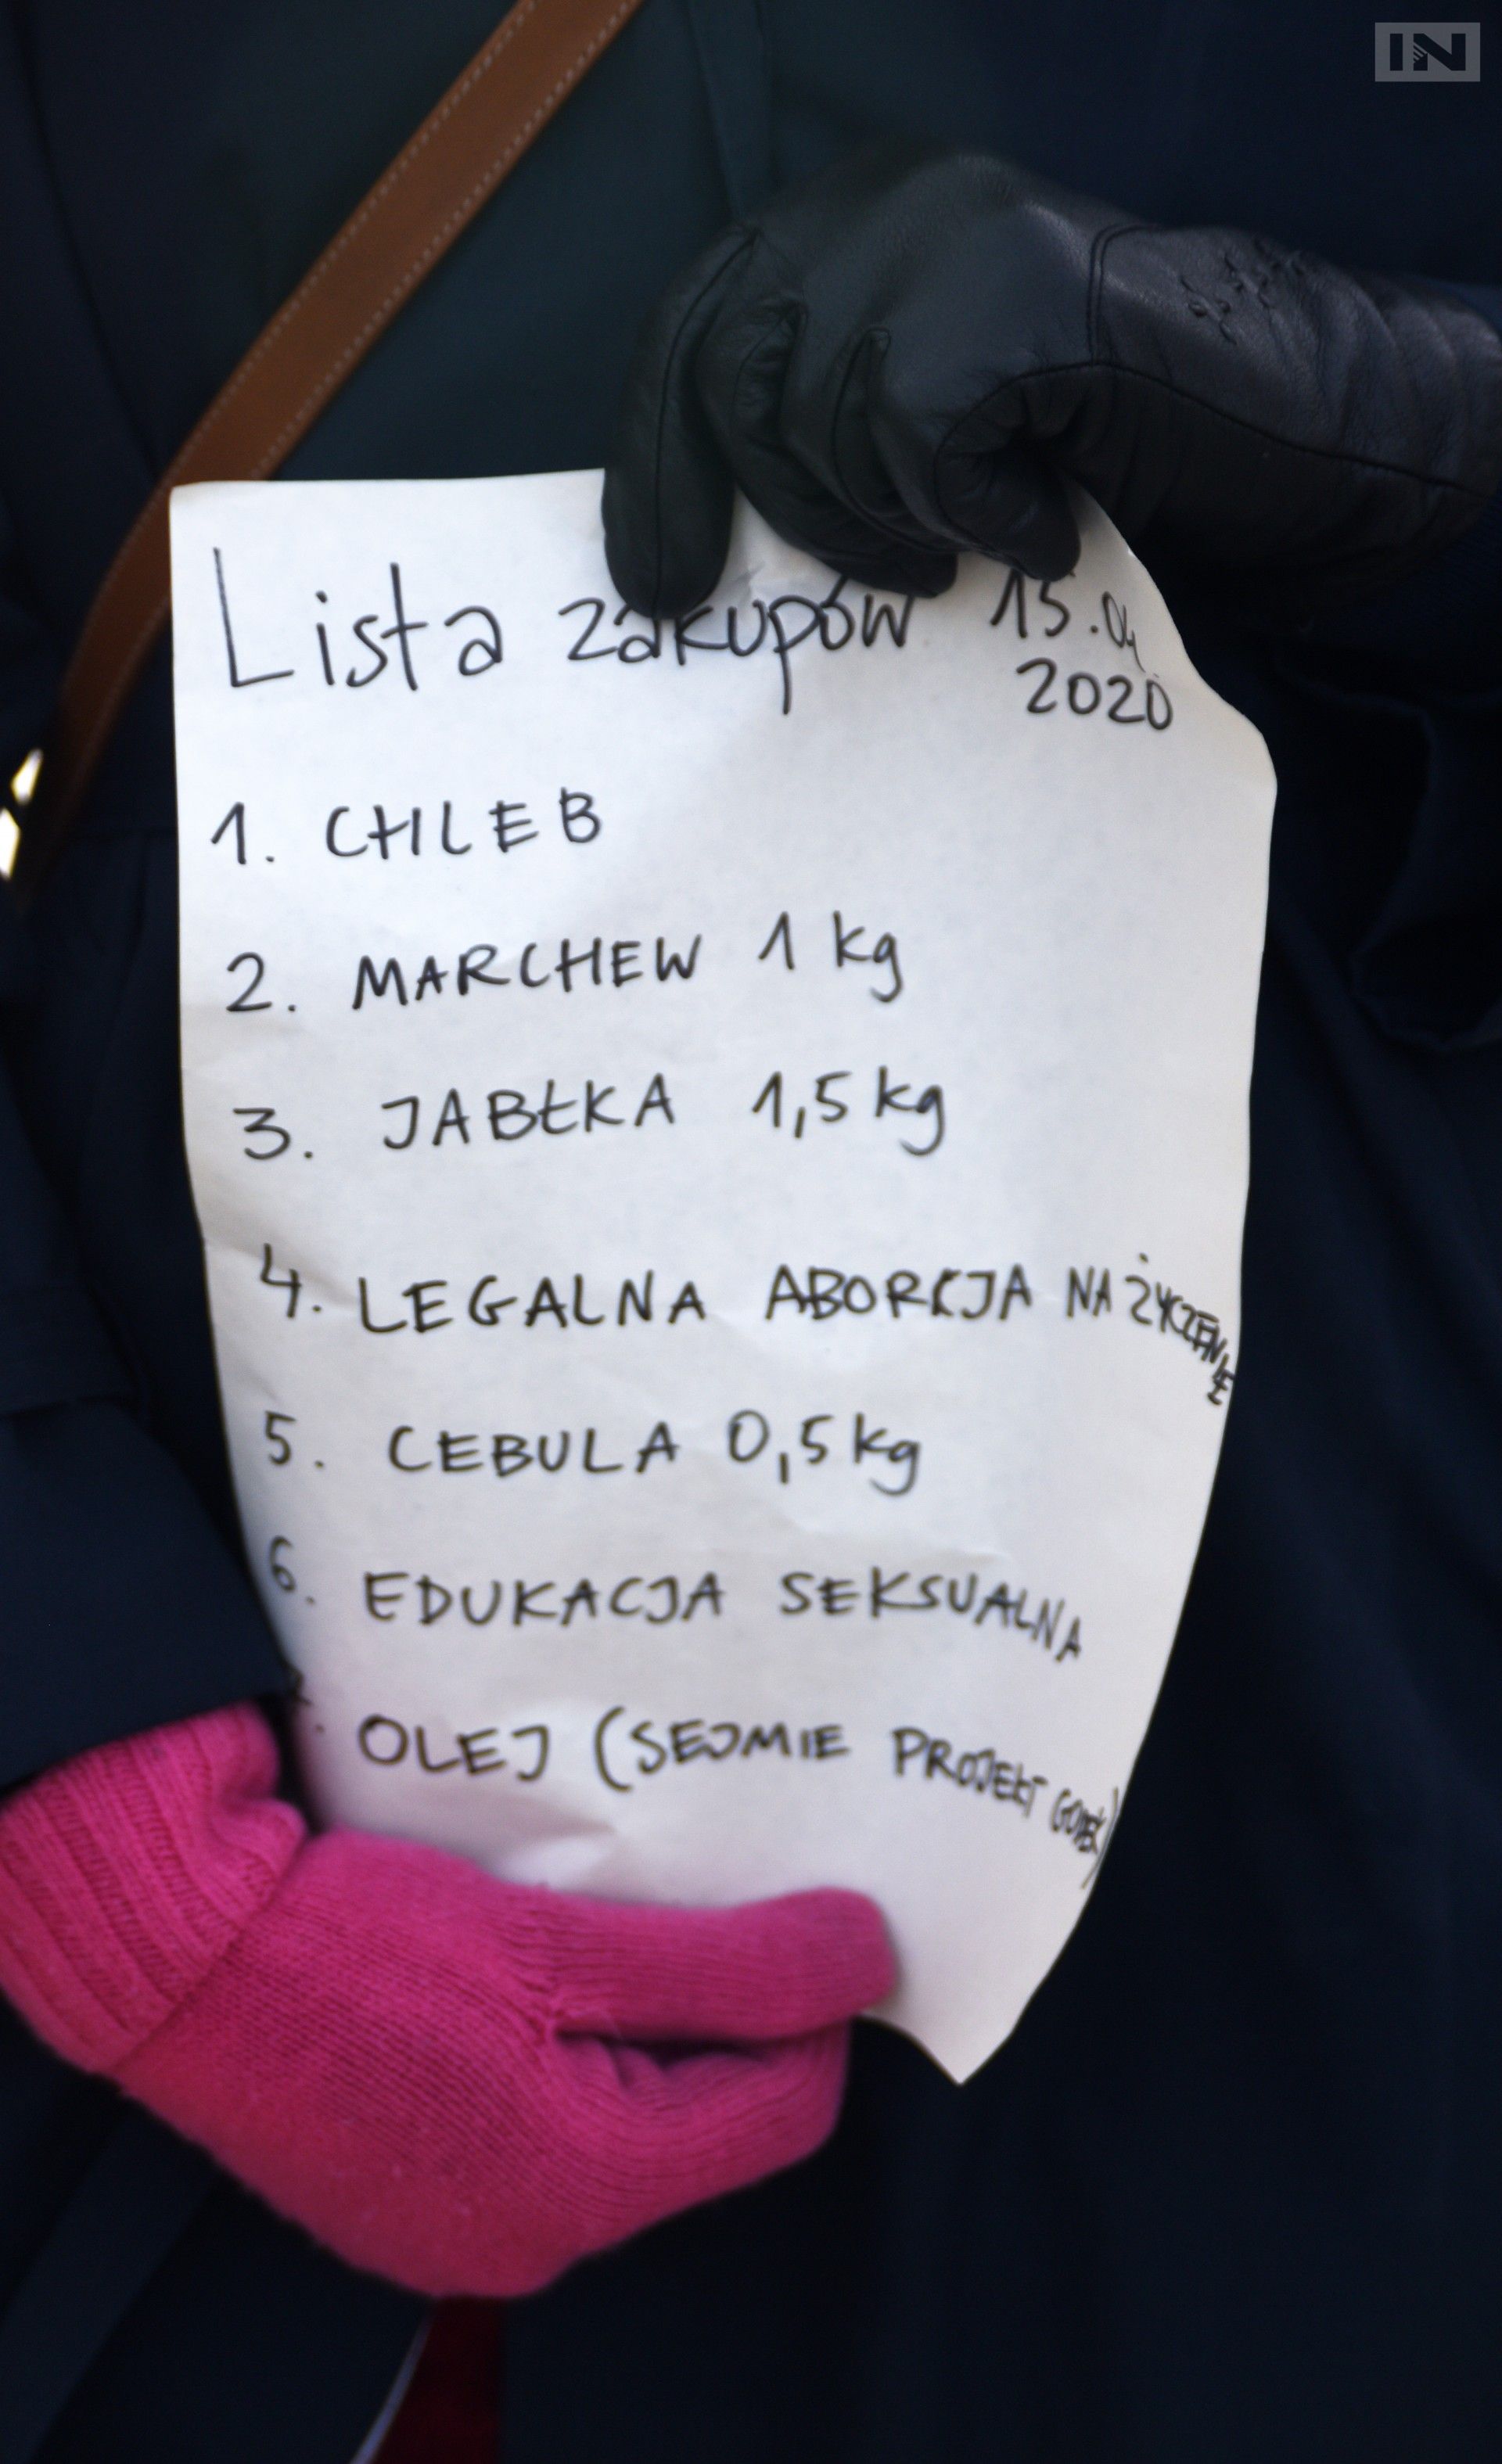 IN
Lista zakupów 15.04.
2020
1. CHLEB
2. MARCHEW 1 kg
3. JABŁKA 1,5 kg
4. LEGALNA ABORCJA NA ŻYCZENIE
5. CEBULA 0,5 kg
6. EDUKACJA SEKSUALNA
7. OLEJ (SEJMIE PROJEKT GODEK)